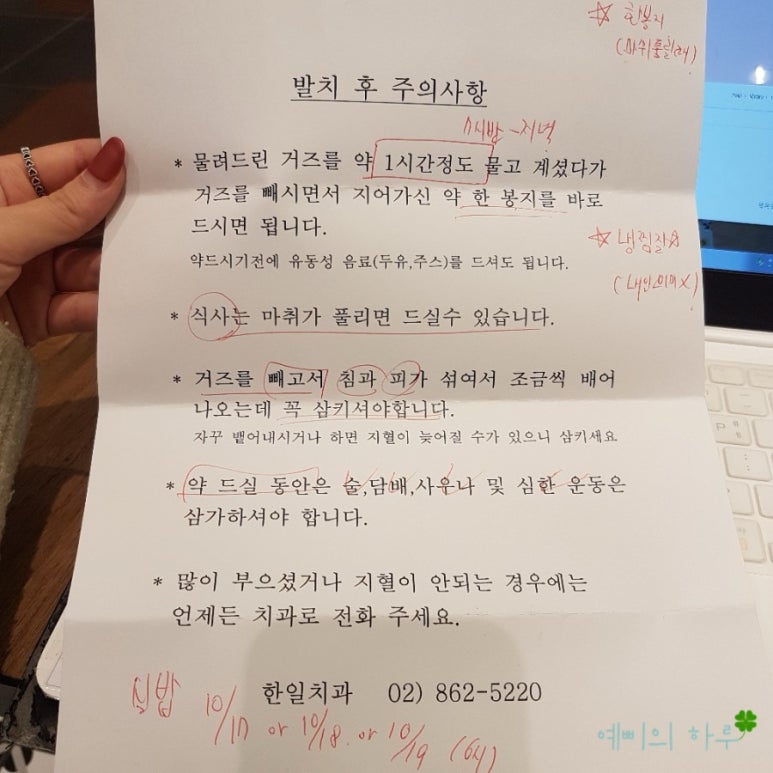 ☆ 한봉지
(마취풀릴때)
발치 후 주의사항
* 물려드린 거즈를 약 1시간정도 물고 계셨다가
거즈를 빼시면서 지어가신 약 한 봉지를 바로
드시면 됩니다.
약드시기전에 유동성 음료(두유,주스)를 드셔도 됩니다.
☆ 냉찜질
* 식사는 마취가 풀리면 드실수 있습니다.
* 거즈를 빼고서 침과 피가 섞여서 조금씩 배어
나오는데 꼭 삼키셔야합니다.
자꾸 뱉어내시거나 하면 지혈이 늦어질 수가 있으니 삼키세요
* 약 드실 동안은 술,담배,사우나 및 심한 운동은
삼가하셔야 합니다.
* 많이 부으셨거나 지혈이 안되는 경우에는
언제든 치과로 전화 주세요.
한일치과 02) 862-5220
실밥 10/17 or 10/18. or 10/19
예삐의 하루